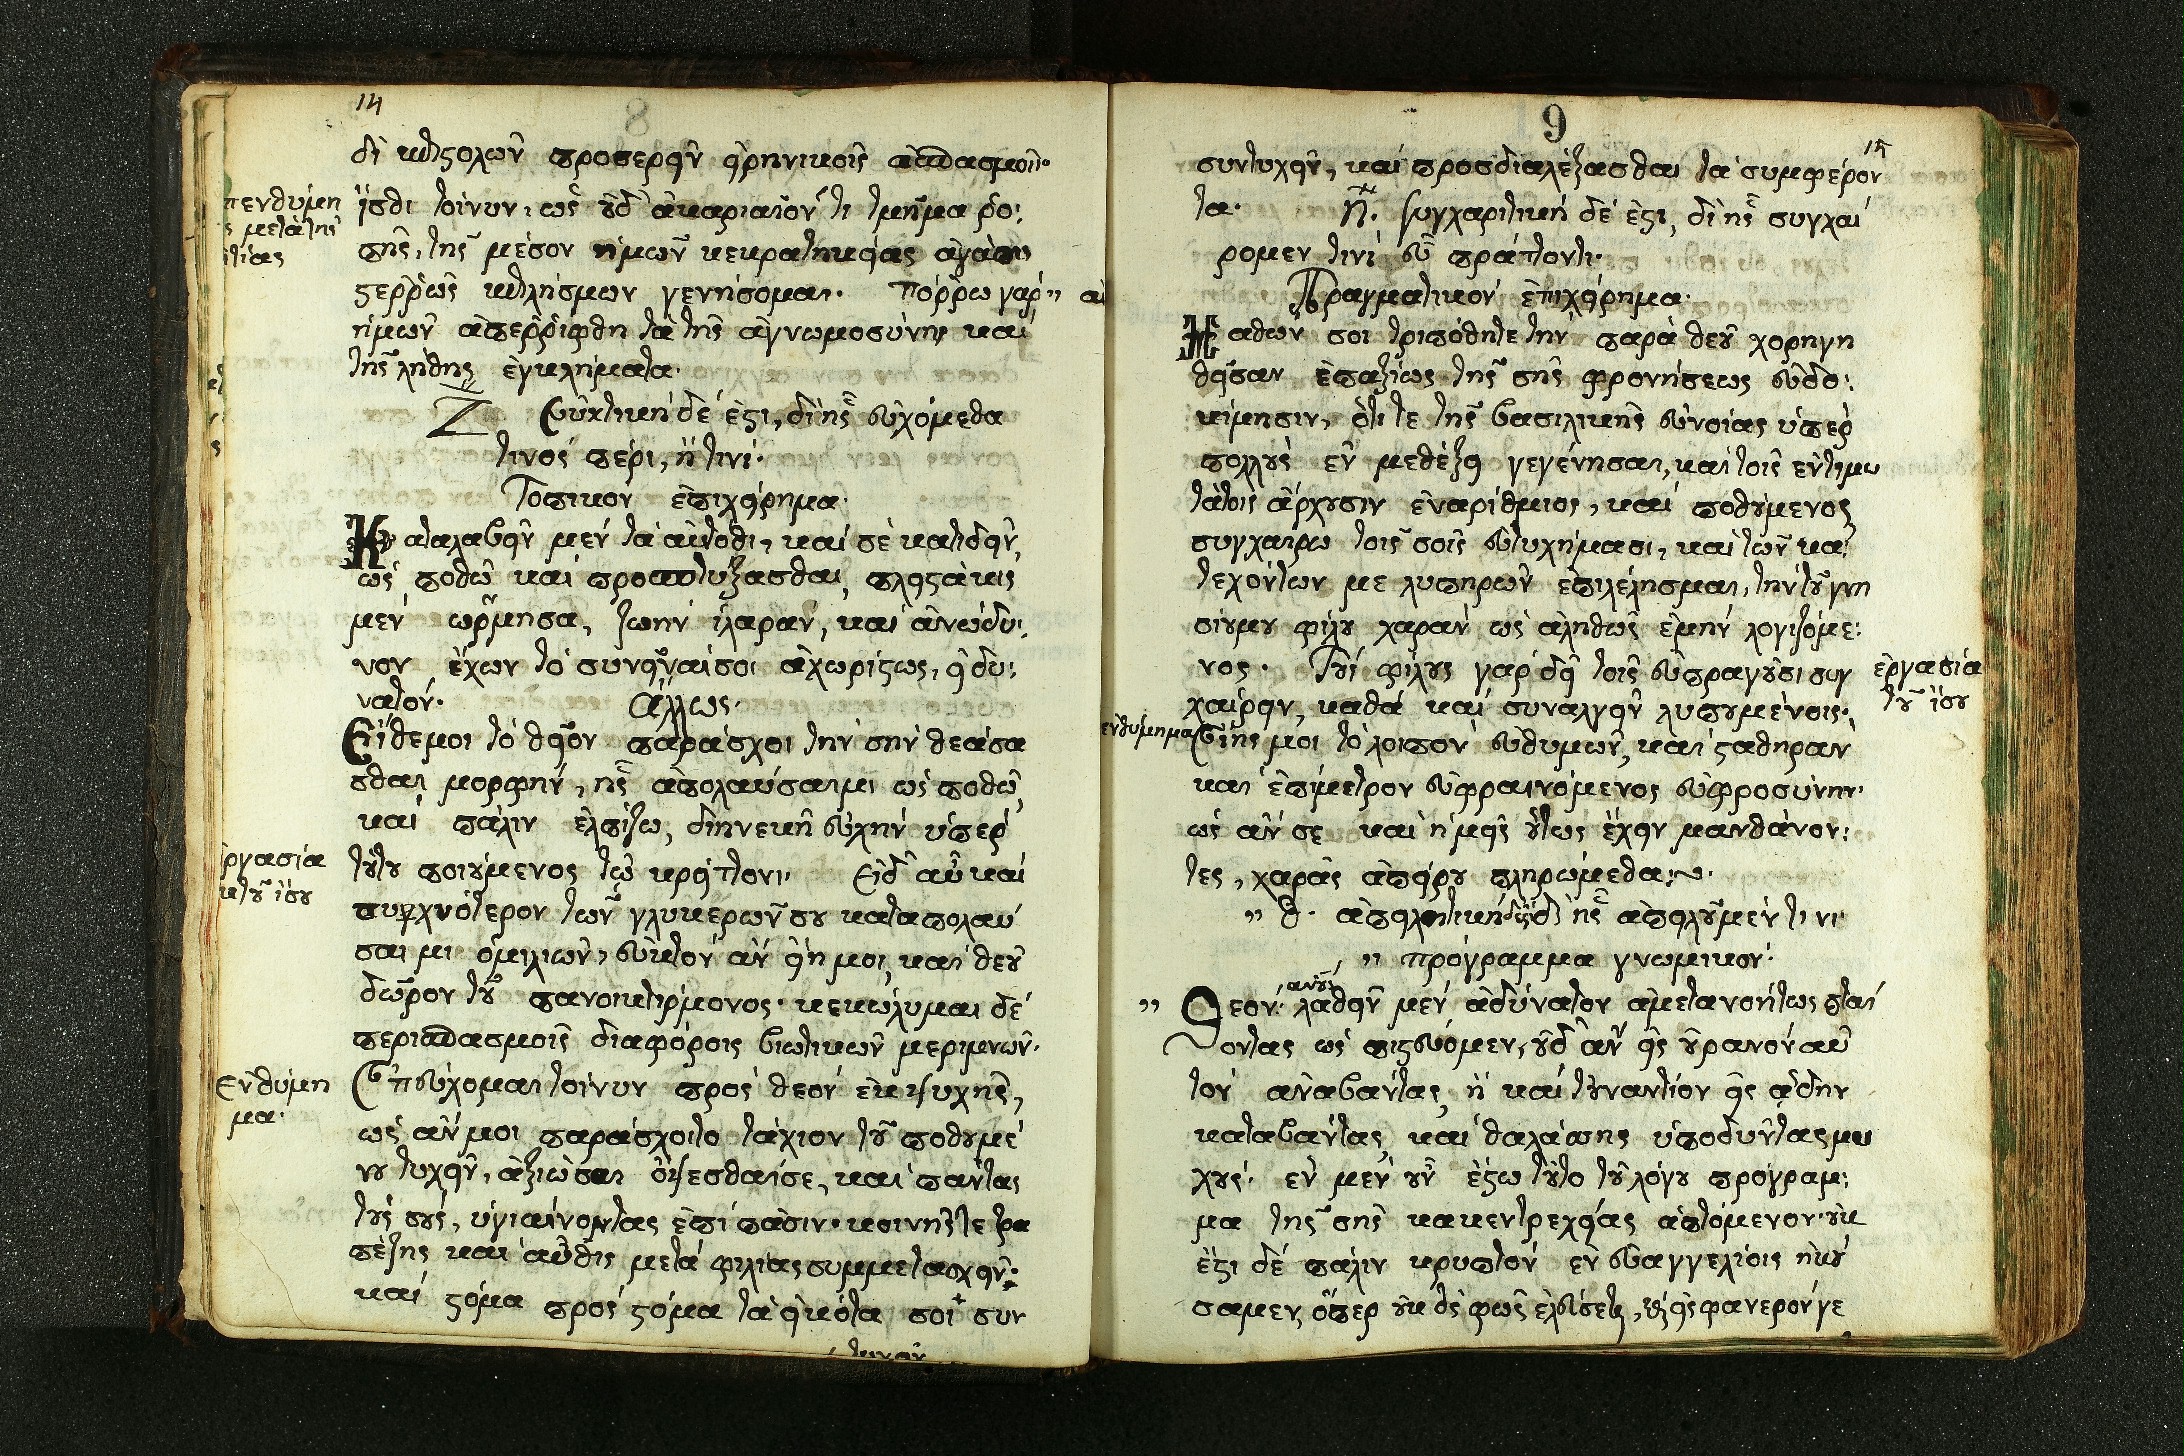 14
8
δι' ἐπιστολῶν προσερεῖν εἰρηνικοῖς ἀσπασμοῖς.
πενθύμη
ἴσθι τοίνυν, ὡς οὐδ' ἀκαριαῖόν τι τμῆμα ῥο:
ς μετὰ τῆς
πῆς, τῆς μέσον ἡμῶν κεκρατηκείας ἀγάπης
ιτίας
στερρῶς ἐπιλήσμων γενήσομαι. Πόρρω γὰρ
ἡμῶν ἀπερρίφθη τὰ τῆς ἀγνωμοσύνης καὶ
τῆς λήθης ἐγκλήματα.
Ζ Εὐκτικὴ δέ ἐστι, δι' ἧς εὐχόμεθα
τινὸς πέρι, ἤ τινί.
Τοπικὸν ἐπιχείρημα.
Καταλαβεῖν μὲν τὰ αὐτόθι, καὶ σὲ κατιδεῖν,
ὡς ποθῶ καὶ προσπτύξασθαι, πλειστάκις
μὲν ὥρμησα, ζωὴν ἱλαράν, καὶ ἀνώδυ:
νον ἔχων τὸ συνεῖναί σοι ἀχωρίστως, εἰ δυ:
νατόν. Ἄλλως.
Εἴθε μοι τὸ θεῖον παράσχοι τὴν σὴν θεάσα
σθαι μορφήν, ἧς ἀπολαύσαιμι ὡς ποθῶ,
καὶ πάλιν ἐλπίζω, διηνεκῆ εὐχὴν ὑπὲρ
ἐργασία
τούτου ποιούμενος τῷ κρείττονι. Εἰ δ' αὖ καὶ
κ τοῦ ἴσου
πυκνότερον τῶν γλυκερῶν σου καταπολαύ
σαιμι ὁμιλιῶν, εὐκτὸν ἂν εἴη μοι, καὶ θεοῦ
δῶρον τοῦ πανοικτίρμονος. κεκώλυμαι δὲ
περισπασμοῖς διαφόροις βιωτικῶν μεριμνῶν.
Ἐνθύμη
Ἐπεύχομαι τοίνυν πρὸς θεὸν ἐκ ψυχῆς,
μα.
ὡς ἄν μοι παράσχοιτο τάχιον τοῦ ποθουμέ
νου τυχεῖν, ἀξιῶσαι ὄψεσθαί σε, καὶ πάντας
τοὺς σούς, ὑγιαίνοντας ἐπὶ πᾶσιν. κοινῆς τε τρα
πέζης καὶ αὖθις μετὰ φιλίας συμμετασχεῖν.
καὶ στόμα πρὸς στόμα τὰ εἰκότα σοὶ συν
τυχεῖν
9
15
συντυχεῖν, καὶ προσδιαλέξασθαι τὰ συμφέρον
τα. η. Συγχαριτικὴ δέ ἐστι, δι' ἧς συγχαί
ρομεν τινὶ εὖ πράττοντι.
Πραγματικὸν ἐπιχείρημα.
Μαθών σοι τριπόθητε τὴν παρὰ θεοῦ χορηγη
θεῖσαν ἐπαξίως τῆς σῆς φρονήσεως εὐδο:
κίμησιν, ὅτι τε τῆς βασιλικῆς εὐνοίας ὑπὲρ
πολλοὺς ἐν μεθέξει γεγένησαι, καὶ τοῖς ἐντιμω
τάτοις ἄρχουσιν ἐναρίθμιος, καὶ ποθούμενος
συγχαίρω τοῖς σοῖς εὐτυχήμασι, καὶ τῶν κα
τεχόντων με λυπηρῶν ἐπιλέλησμαι, τὴν τοῦ γνη
σίου μου φίλου χαρὰν ὡς ἀληθῶς ἐμὴν λογιζόμε:
νος. Τοὺς φίλους γὰρ δεῖ τοῖς εὐπραγοῦσι συγ
ἐργασία
χαίρειν, καθὰ καὶ συναλγεῖν λυπουμένοις.
τοῦ ἴσου
ἐνθύμημα
Εἴης μοι τὸ λοιπὸν εὐθυμῶν, καὶ σταθηρὰν
καὶ ἐπίμετρον εὐφραινόμενος εὐφροσύνην.
ὡς ἄν σε καὶ ἡμεῖς οὕτως ἔχειν μανθάνον:
τες, χαρᾶς ἀπείρου πληρώμεθα:~
θ. ἀπειλητικὴ δι' ἧς ἀπειλοῦμέν τινι
πρόγραμμα γνωμικόν.
Θεόν. λαθεῖν μὲν ἀδύνατον ἀμετανοήτως πταί
οντας ὡς πιστεύομεν, οὐδ' ἂν εἰς οὐρανὸν αὐ
τὸν ἀναβάντας, ἢ καὶ τοὐναντίον εἰς ᾅδην
καταβάντας, καὶ θαλάσσης ὑποδύντας μυ
χούς. ἓν μὲν οὖν ἔστω τοῦτο τοῦ λόγου πρόγραμ:
μα τῆς σῆς κακεντρεχείας ἁπτόμενον. οὐκ
ἔστι δὲ πάλιν κρυπτὸν ἐν εὐαγγελίοις ἠκού
σαμεν, ὅπερ οὐκ εἰς φῶς ἐλεύσεται, καὶ εἰς φανερὸν γε